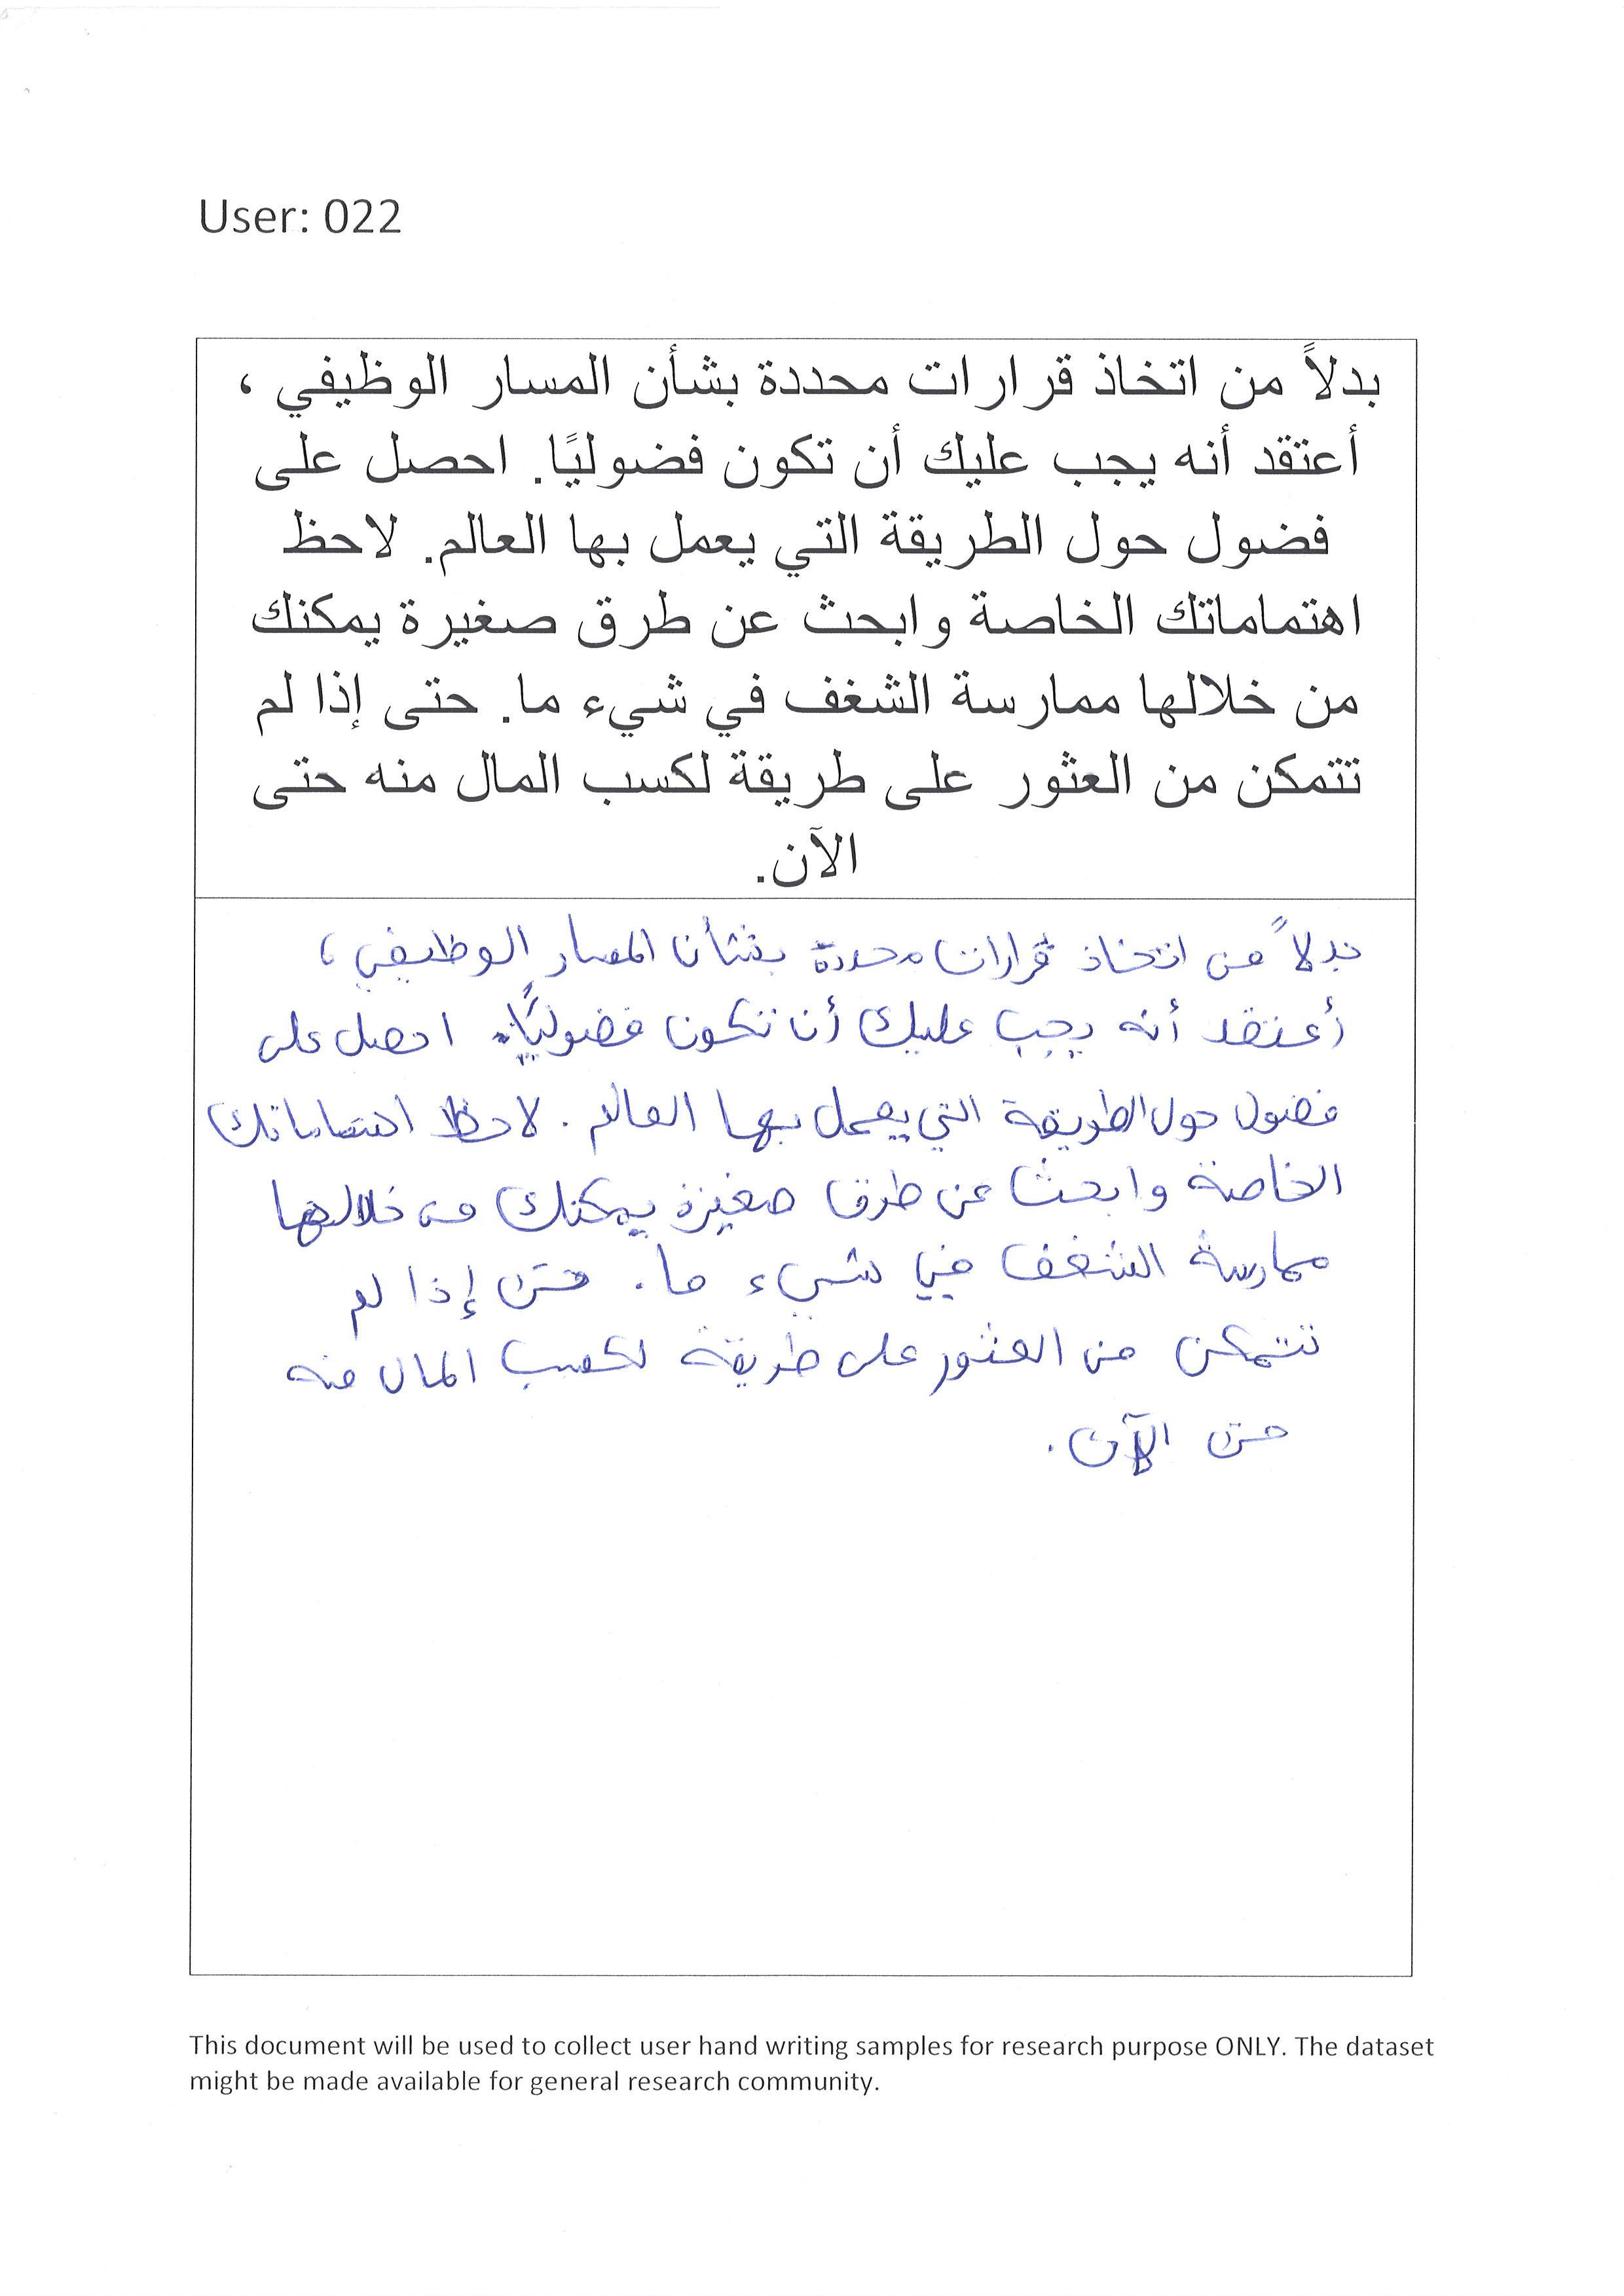 User: 022
بدلاً من اتخاذ قرارات محددة بشأن المسار الوظيفي ،
أعتقد أنه يجب عليك أن تكون فضوليًا. احصل على
فضول حول الطريقة التي يعمل بها العالم. لاحظ
اهتماماتك الخاصة وابحث عن طرق صغيرة يمكنك
من خلالها ممارسة الشغف في شيء ما. حتى إذا لم
تتمكن من العثور على طريقة لكسب المال منه حتى
الآن.
بدلاً من اتخاذ قرارات محددة بشأن المسار الوظيفي ،
أعتقد أنه يجب عليك أن تكون فضوليًا. احصل على
فضول حول الطريقة التي يعمل بها العالم. لاحظ اهتماماتك
الخاصة وابحث عن طرق صغيرة يمكنك من خلالها
ممارسة الشغف في شيء ما. حتى إذا لم
تتمكن من العثور على طريقة لكسب المال منه
حتى الآن.
This document will be used to collect user hand writing samples for research purpose ONLY. The dataset
might be made available for general research community.